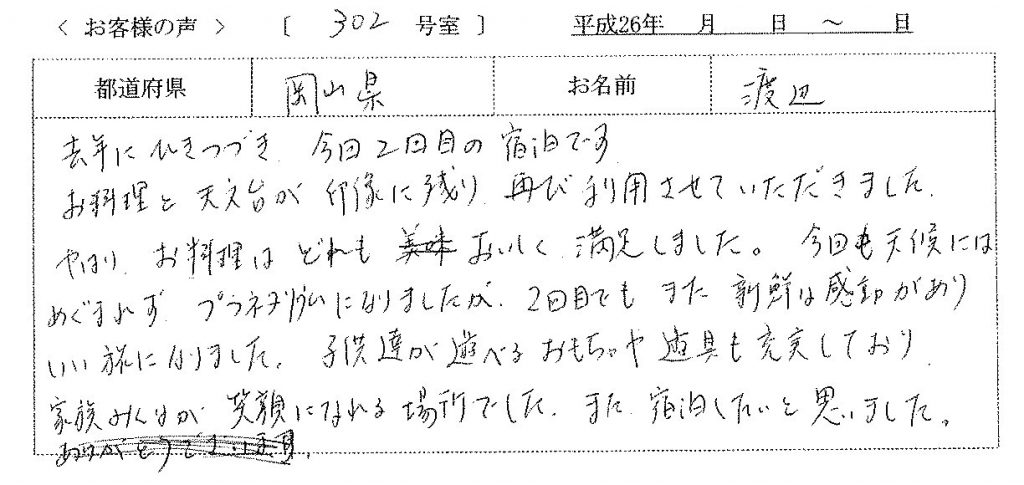 < お客様の声 > [ 302 号室 ] 平成26年 月 日 ~ 日
都道府県 岡山県 お名前 渡辺
去年にひきつづき、今回2回目の宿泊です
お料理と天文台が印象に残り、再び利用させていただきました。
やはり、お料理はどれもおいしく満足しました。今回も天候には
めぐまれず、プラネタリウムになりましたが、2回目でもまた新鮮な感動があり
いい旅になりました。子供達が遊べるおもちゃや道具も充実しており、
家族みんなが笑顔になれる場所でした。また宿泊したいと思いました。
ありがとうございます。